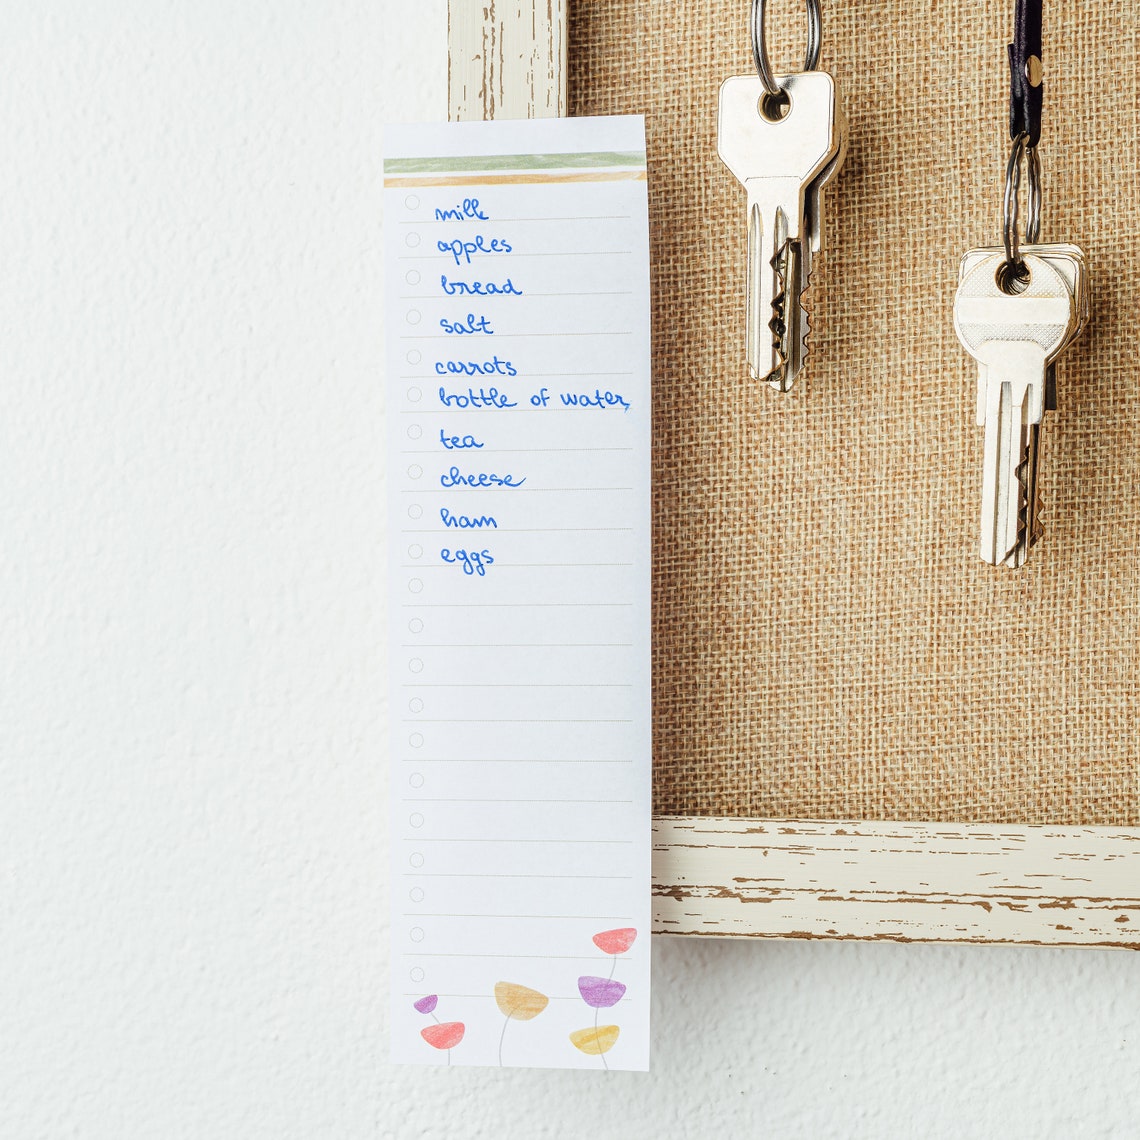 milk
apples
bread
salt
carrots
bottle of water,
tea
cheese
ham
eggs